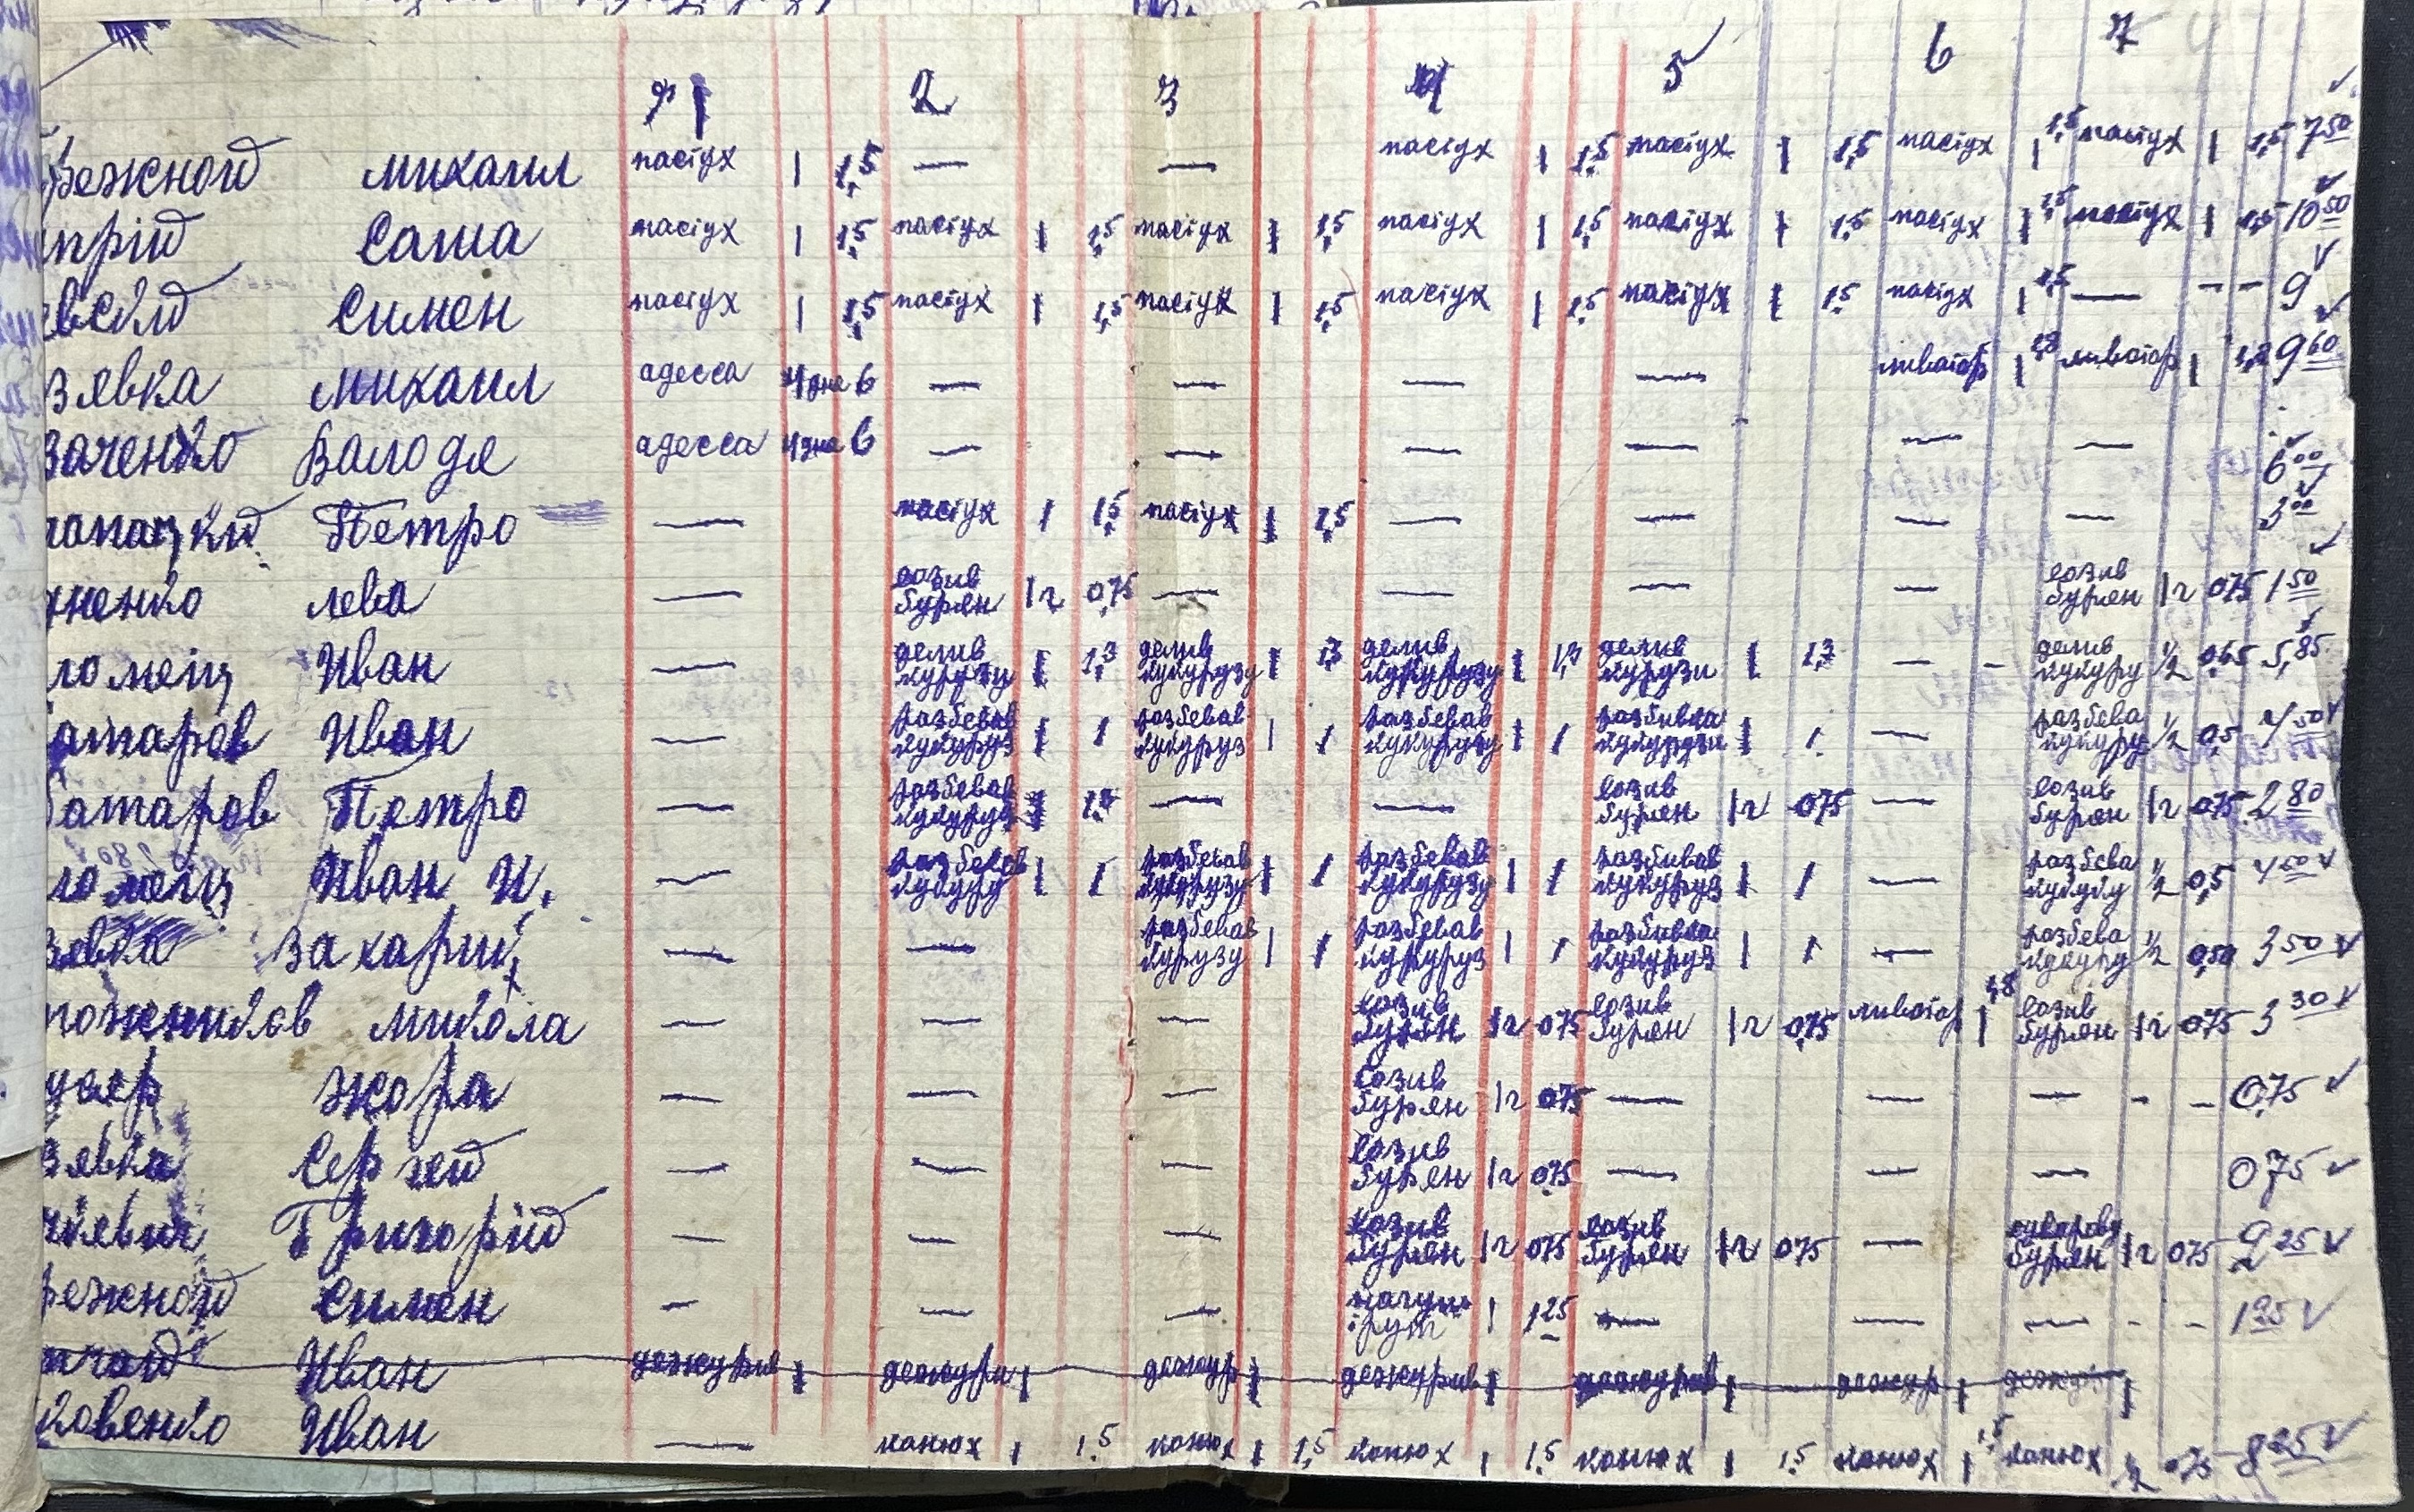 1 2 3 4 5 6 7
режной михаил пастух 1 1,5 — — пастух 1 1,5 пастух 1 1,5 пастух 1 1,5 пастух 1 1,5 7 50
прій Саша пастух 1 1,5 пастух 1 1,5 пастух 1 1,5 пастух 1 1,5 пастух 1 1,5 пастух 1 1,5 пастух 1 1,5 10 50
Симен пастух 1 1,5 пастух 1 1,5 пастух 1 1,5 пастух 1 1,5 пастух 1 1,5 пастух 1 1,5 — - - 9
зявка михаил адесса 4 дня 6 — — — — 1 1,8 1 1,8 9 60
заченко Валодя адесса 4 дня 6 — — — — — — 6 00
Петро — пастух 1 1,5 пастух 1 1,5 — — — — 3 00
ненко лева — возив бурян 1 г 0,75 — — — — возив бурян 1 г 075 1 50
ломец Иван — делив 1 1,3 делив кукурузу 1 1,3 делив кукурузу 1 1,3 делив курузи 1 1,3 — - делив кукуру 1/2 0,65 5,85
атаров Иван — разбевав кукуруз 1 1 разбевав кукуруз 1 1 разбевав кукурузу 1 1 разбивка кукурузи 1 1 — разбева кукуру 1/2 0,5 4 50
атаров Петро — разбевав кукуруз 1 1,3 — — возив бурян 1 г 075 — возив бурян 1 г 075 2 80
ломец Иван И. — разбевав кукуру 1 1 разбевав кукурузу 1 1 разбевав кукурузу 1 1 разбивав кукуруз 1 1 — разбева 1/2 0,5 4 50
зявка Захарий — — разбевав курузу 1 1 разбевав кукуруз 1 1 разбивка кукуруз 1 1 — разбева кукуру 1/2 0,50 3 50
ноженков микола — — — возив бурян 1 г 075 возив бурян 1 г 0,75 1 1,8 возив бурян 1 г 075 3 30
жора — — — возив бурян 1 г 075 — — — - - 0,75
зявка Сергей — — — возив бурян 1 г 0,75 — — — 075
Григорій — — — возив бурян 1 г 075 возив бурян 1 г 075 — бурян 1 г 075 2 25
режной Симен — — — 1 1 25 — — — - - 1 25
Иван дежурив 1 дежури 1 дежур 1 дежурив 1 дежурив 1 дежур 1 1
ковенко Иван — конюх 1 1,5 конюх 1 1,5 конюх 1 1,5 конюх 1 1,5 конюх 1 1,5 конюх 1/2 075 8 25